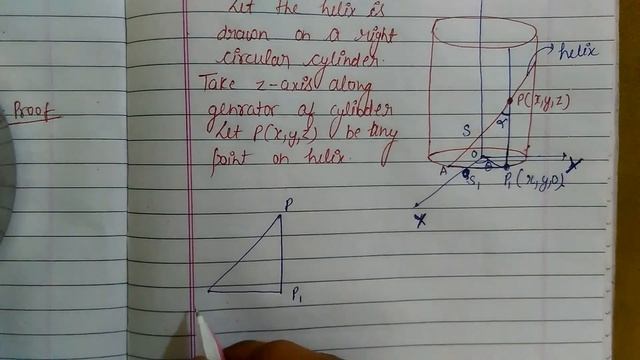 Let the helix is
drawn on a right
circular cylinder.
Take z-axis along
Proof
genrator of cylinder
Let P(x,y,z) be any
point on helix.
helix
P(x,y,z)
α
S
O
θ
X
A
S₁
P₁(x,y,0)
P
P₁